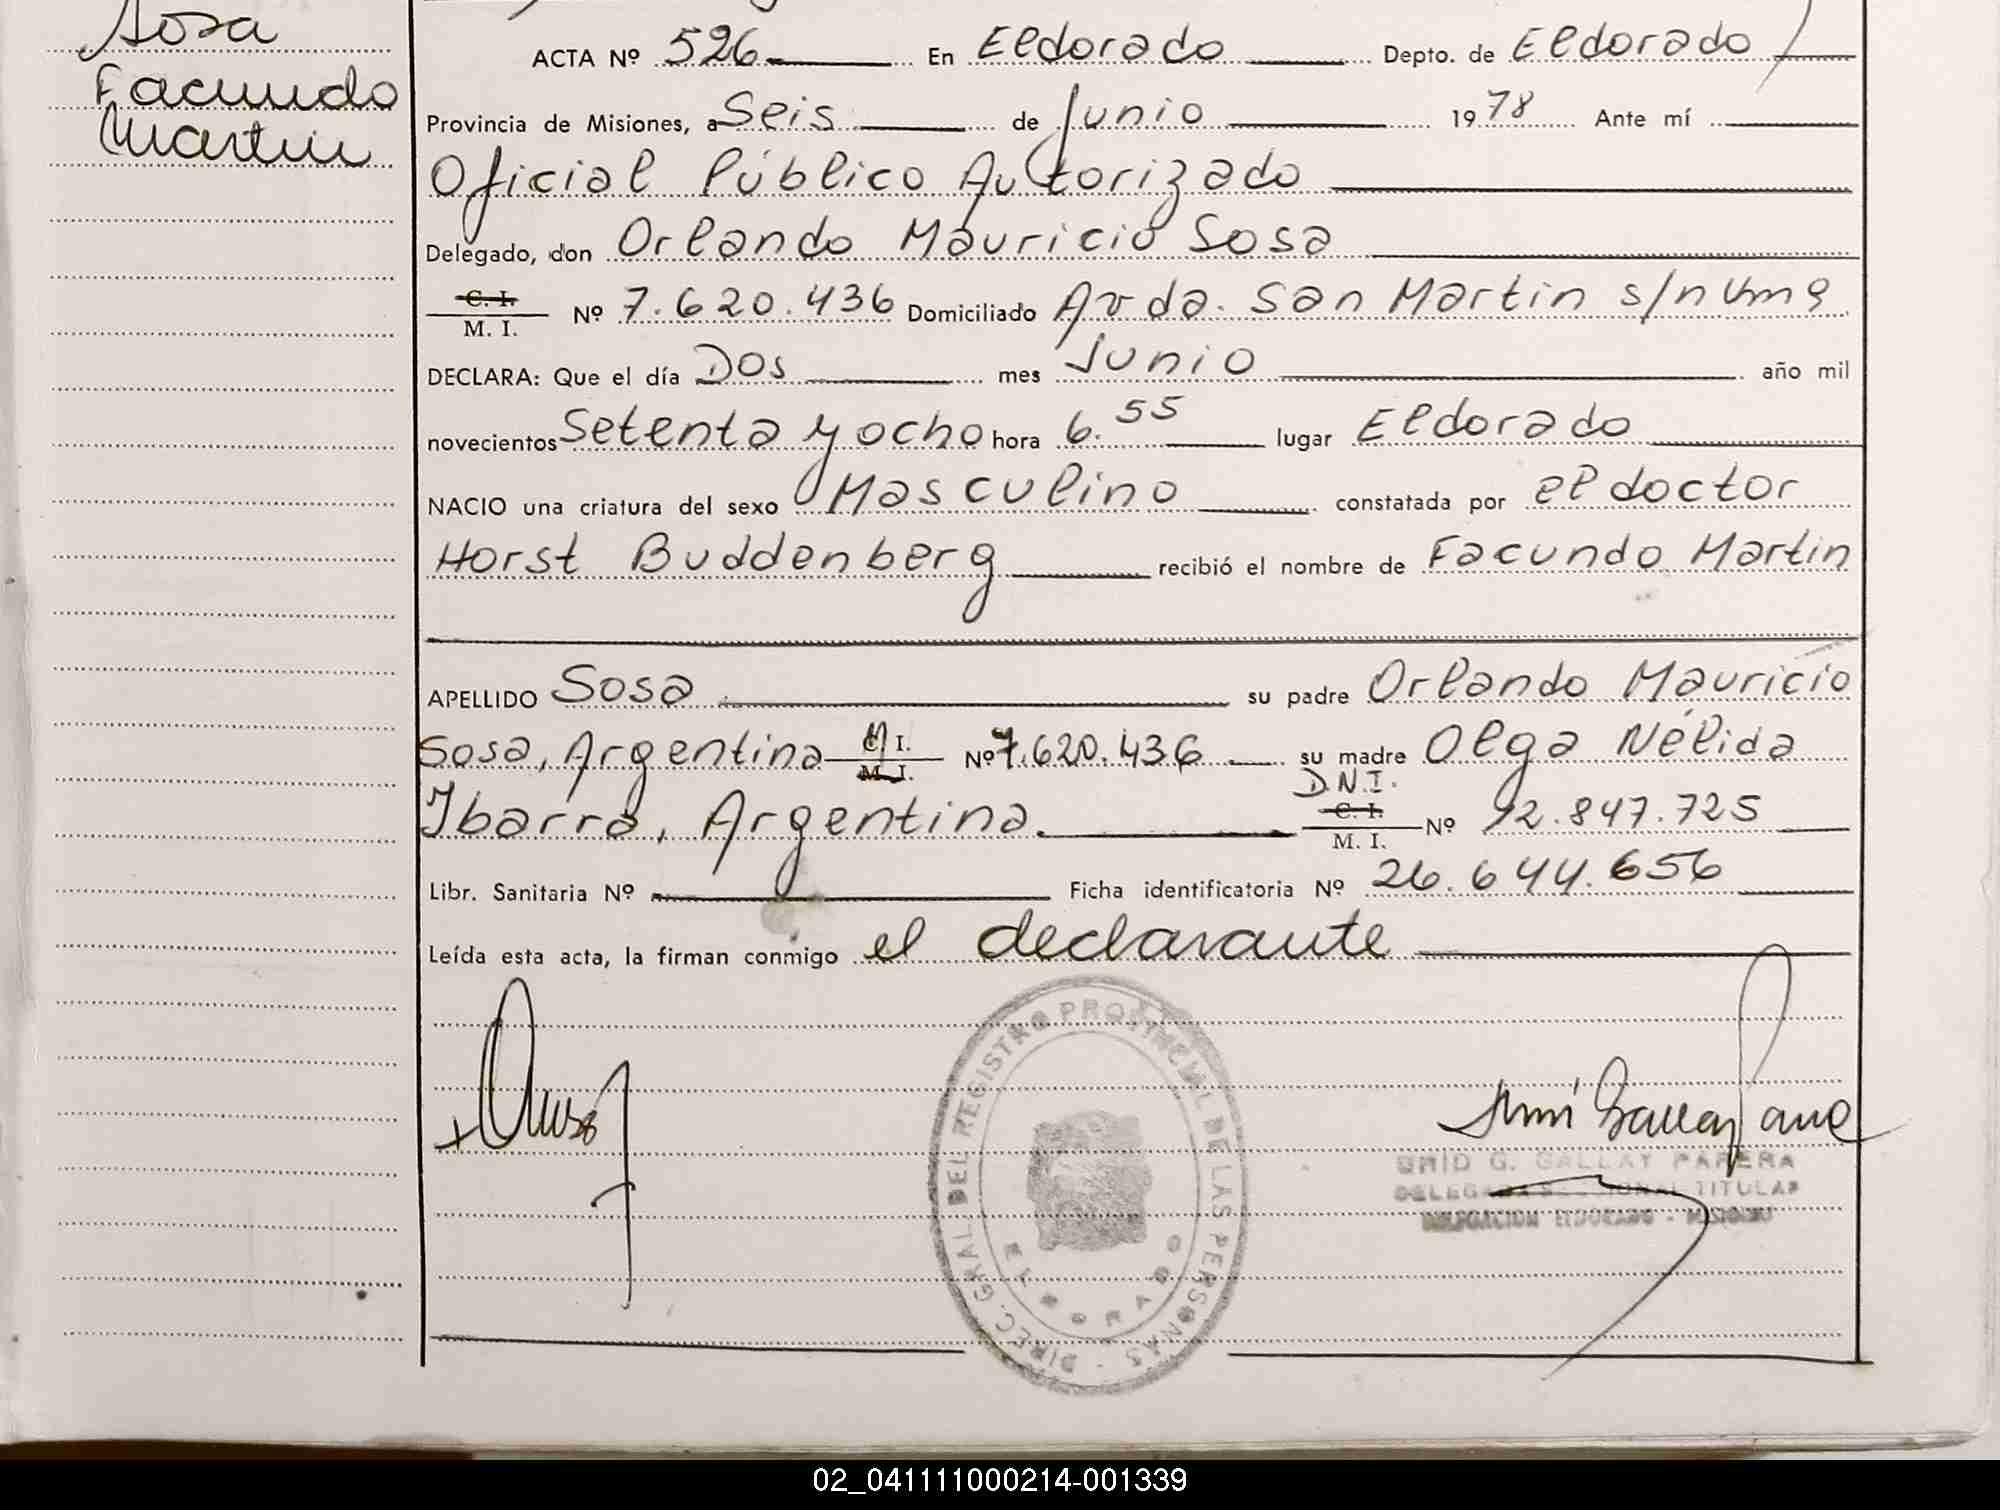 Sosa
Facundo
Martin
ACTA Nº 526 En Eldorado Depto. de Eldorado
Provincia de Misiones, a Seis de Junio 1978 Ante mí
Oficial Público Autorizado
Delegado, don Orlando Mauricio Sosa
C. I.
M. I. Nº 7.620.436 Domiciliado Avda. San Martin s/númº
DECLARA: Que el día Dos mes Junio año mil
novecientos Setenta y ocho hora 6.55 lugar Eldorado
NACIO una criatura del sexo Masculino constatada por el doctor
Horst Buddenberg recibió el nombre de Facundo Martin
APELLIDO Sosa su padre Orlando Mauricio
Sosa, Argentina M I.
M. I. Nº 7.620.436 su madre Olga Nélida
Ibarra, Argentina. D.N.I.
C. I.
M. I. Nº 12.847.725
Libr. Sanitaria Nº Ficha identificatoria Nº 26.644.656
Leída esta acta, la firman conmigo el declarante
DIREC. GRAL. DEL REGISTRO PROVINCIAL DE LAS PERSONAS
ELDORADO
G. GALLAY PARERA
DELEGADA SECCIONAL TITULAR
DELEGACION ELDORADO - MISIONES
02_041111000214-001339